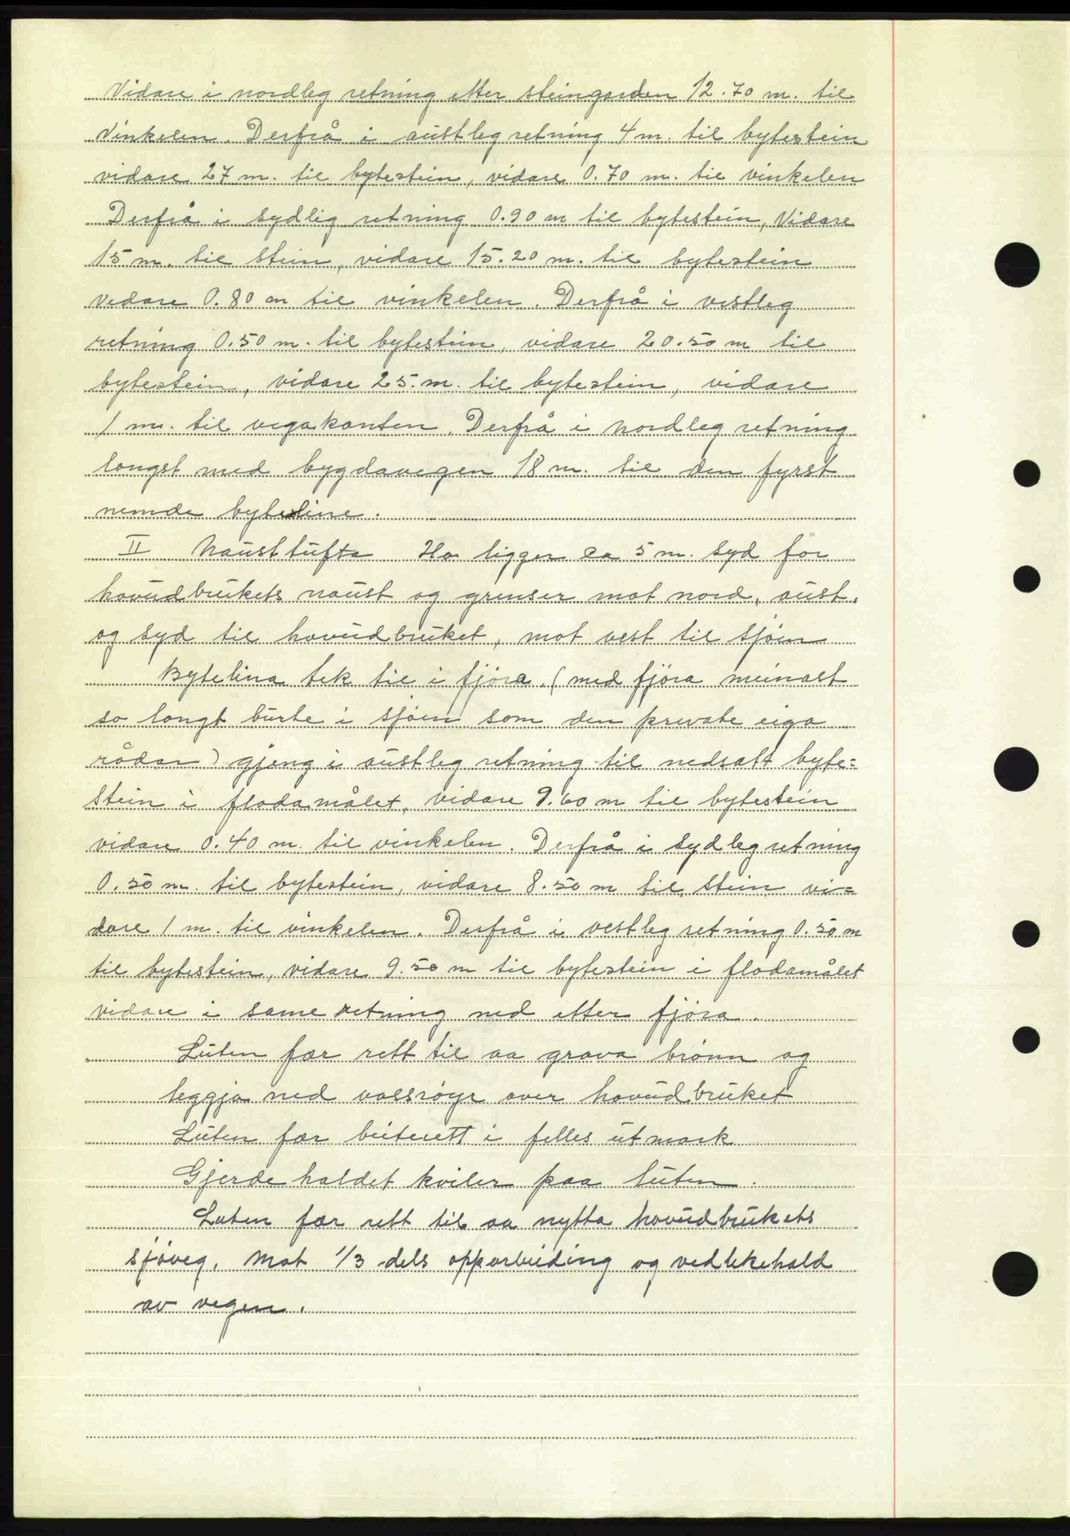 Vidare i nordleg retning etter steingarden 12.70 m. til
Vinkelen. Derfrå i austleg retning 4 m. til bytestein
vidare 27 m. til bytestein, vidare 0.70 m. til vinkelen
Derfrå i sydlig retning 0.90 m til bytestein, Vidare
15 m. til stein, vidare 15.20 m. til bytestein
vidare 0.80 m til vinkelen. Derfrå i vestleg
retning 0.50 m. til bytestein, vidare 20.50 m til
bytestein, vidare 25. m. til bytestein, vidare
1 m. til vegakanten. Derfrå i nordleg retning
langst med bygdavegen 18 m. til den fyrst
nemde byteline.
II Nausttufta Ho ligger ca 5 m. syd for
hovudbrukets naust og grenser mot nord, aust.
og syd til hovudbruket, mot vest til sjöen
Bytelina tek til i fjöra, (med fjöra meinast
so langt burte i sjöen som den private eiga
rådar) gjeng i austleg retning til nedsatt byte=
stein i flodamålet, vidare 9.60 m til bytestein
vidare 0.40 m. til vinkelen. Derfrå i sydleg retning
0.50 m. til bytestein, vidare 8.50 m til stein vi=
dare 1 m. til vinkelen. Derfrå i vestleg retning 0.50 m
til bytestein, vidare 9.50 m til bytestein i flodamålet
vidare i same retning ned etter fjöra.
Luten fær rett til aa grava brönn og
leggja ned vassröyr over hovudbruket
Luten fær beiterett i felles utmark
Gjerdehaldet kviler paa luten.
Luten fær rett til aa nytta hovudbrukets
sjöveg, mot 1/3 dels opparbeiding og vedlikehald
av vegen.